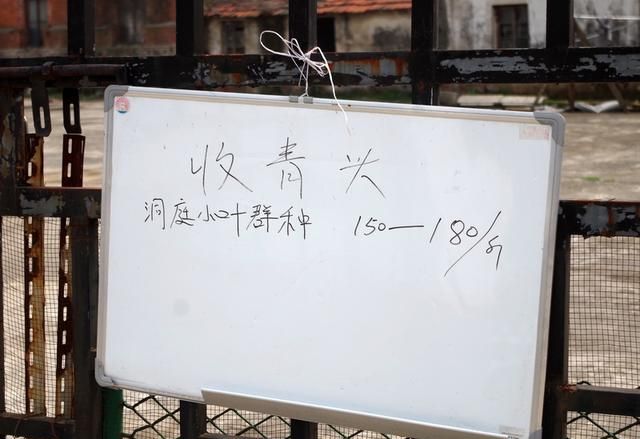 收青头
洞庭小叶群种 150—180/斤